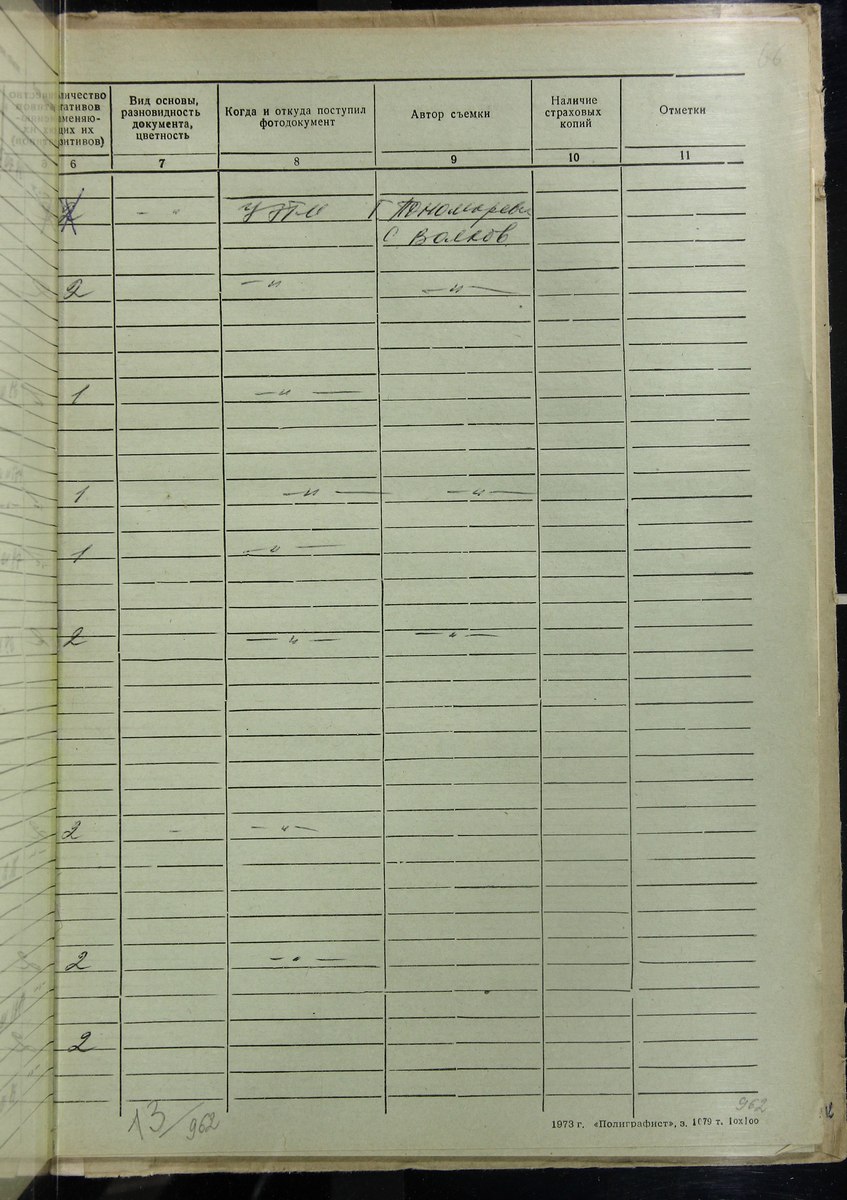 66
личество
гативов
меняю-
щих их
зитивов)
Вид основы,
разновидность
документа,
цветность
Когда и откуда поступил
фотодокумент
Автор съемки
Наличие
страховых
копий
Отметки
6 7 8 9 10 11
2 — " Г Пономарева
С Волков
2 — " — " —
1 — " —
1 — " — — " —
1 — " —
2 — " — — " —
2 - — " —
2 — " —
2
13/962
962
1973 г. «Полиграфист», з. 1079 т. 10х100